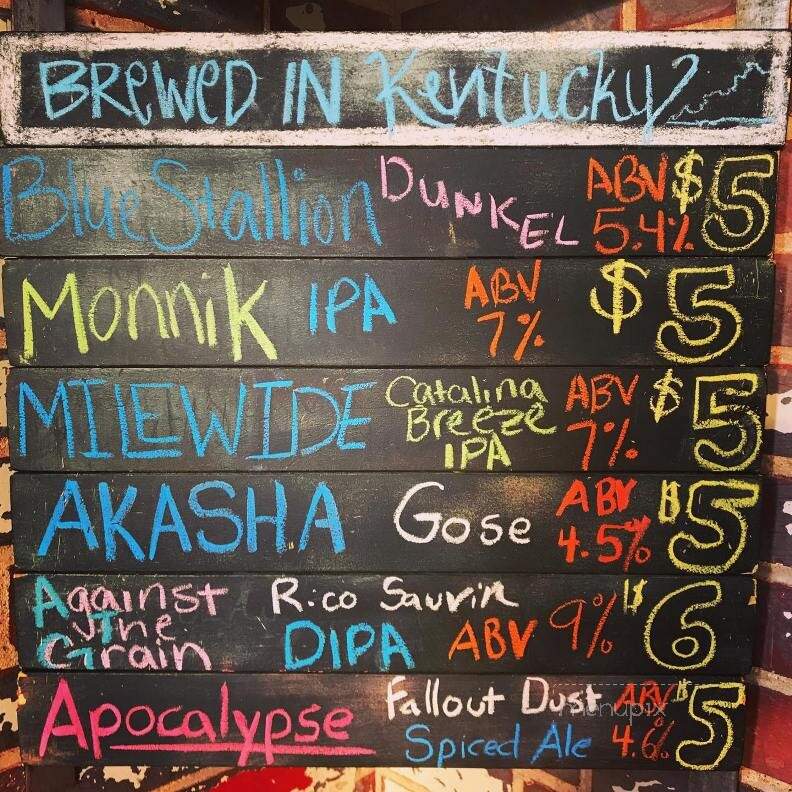 BREWED IN Kentucky
Blue Stallion DUNKEL ABV 5.4% $5
Monnik IPA ABV 7% $5
MILEWIDE Catalina Breeze IPA ABV 7% $5
AKASHA Gose ABV 4.5% $5
Against The Grain Rico Sauvin DIPA ABV 9% $6
Apocalypse Fallout Dust Spiced Ale ABV 4.6% $5
menupix